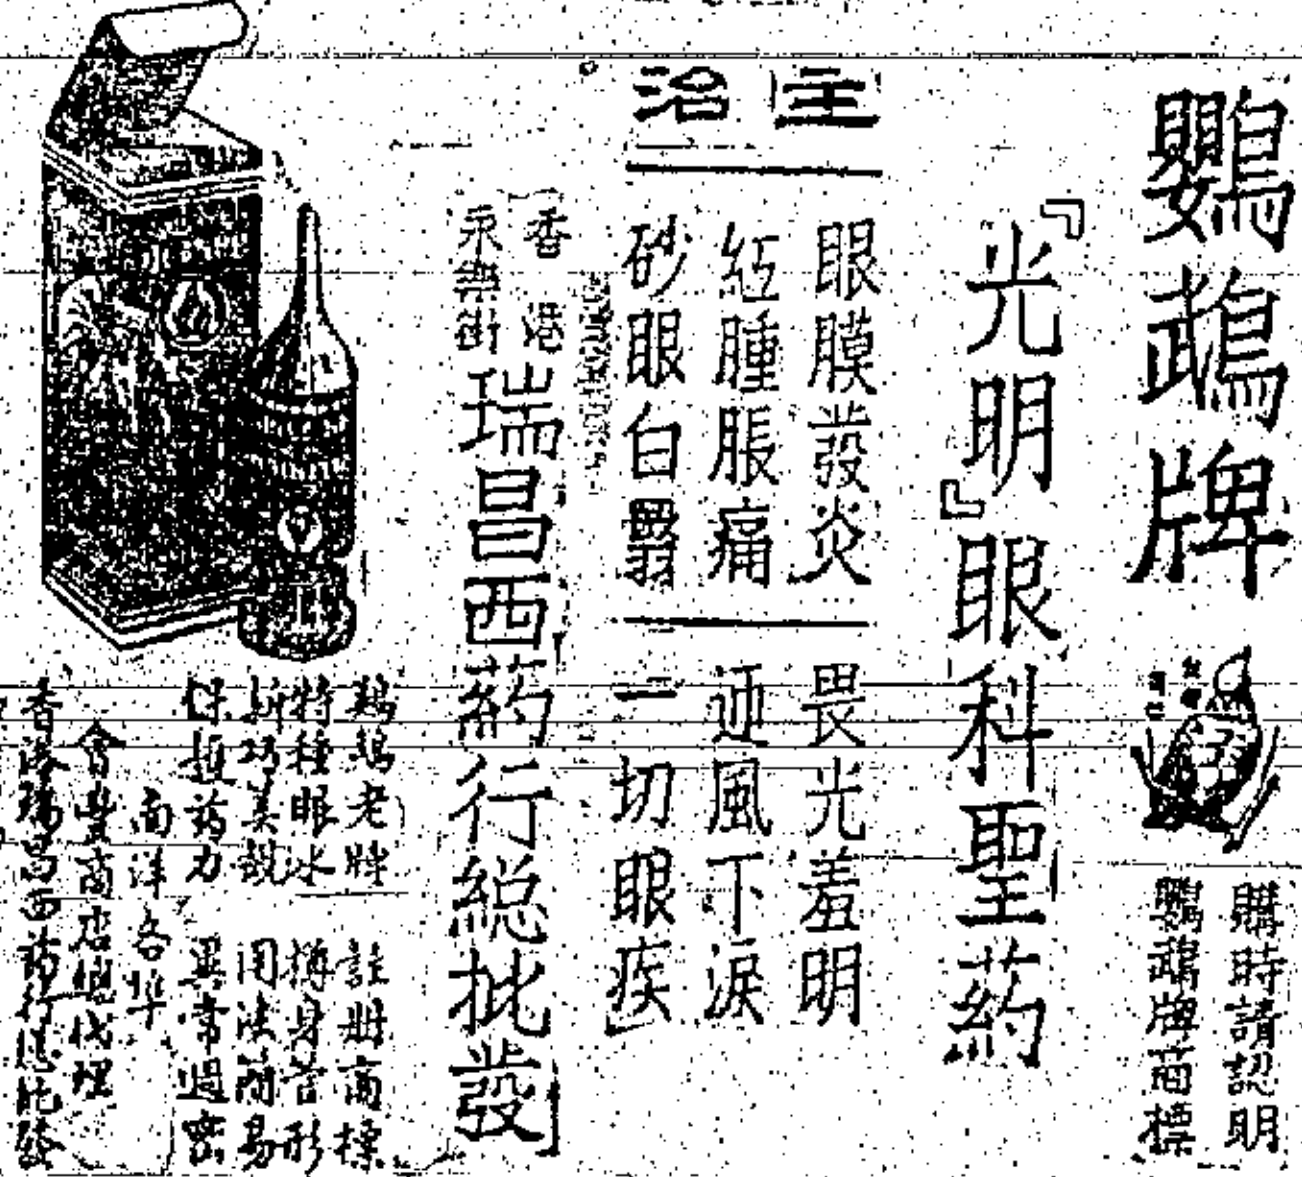 鸚鵡牌
購時請認明
鸚鵡牌商標
『光明』眼科聖葯
主治
眼膜發炎
紅腫脹痛
砂眼白翳
畏光羞明
迎風下淚
一切眼疾
香港
永樂街
瑞昌西葯行総批發
鸚鵡老牌 註册商標
特種眼水 樽身苦形
新巧美觀 用法簡易
保題葯力 異常週密
南洋各埠
會豐商店總代理
香港瑞昌西葯行總批發